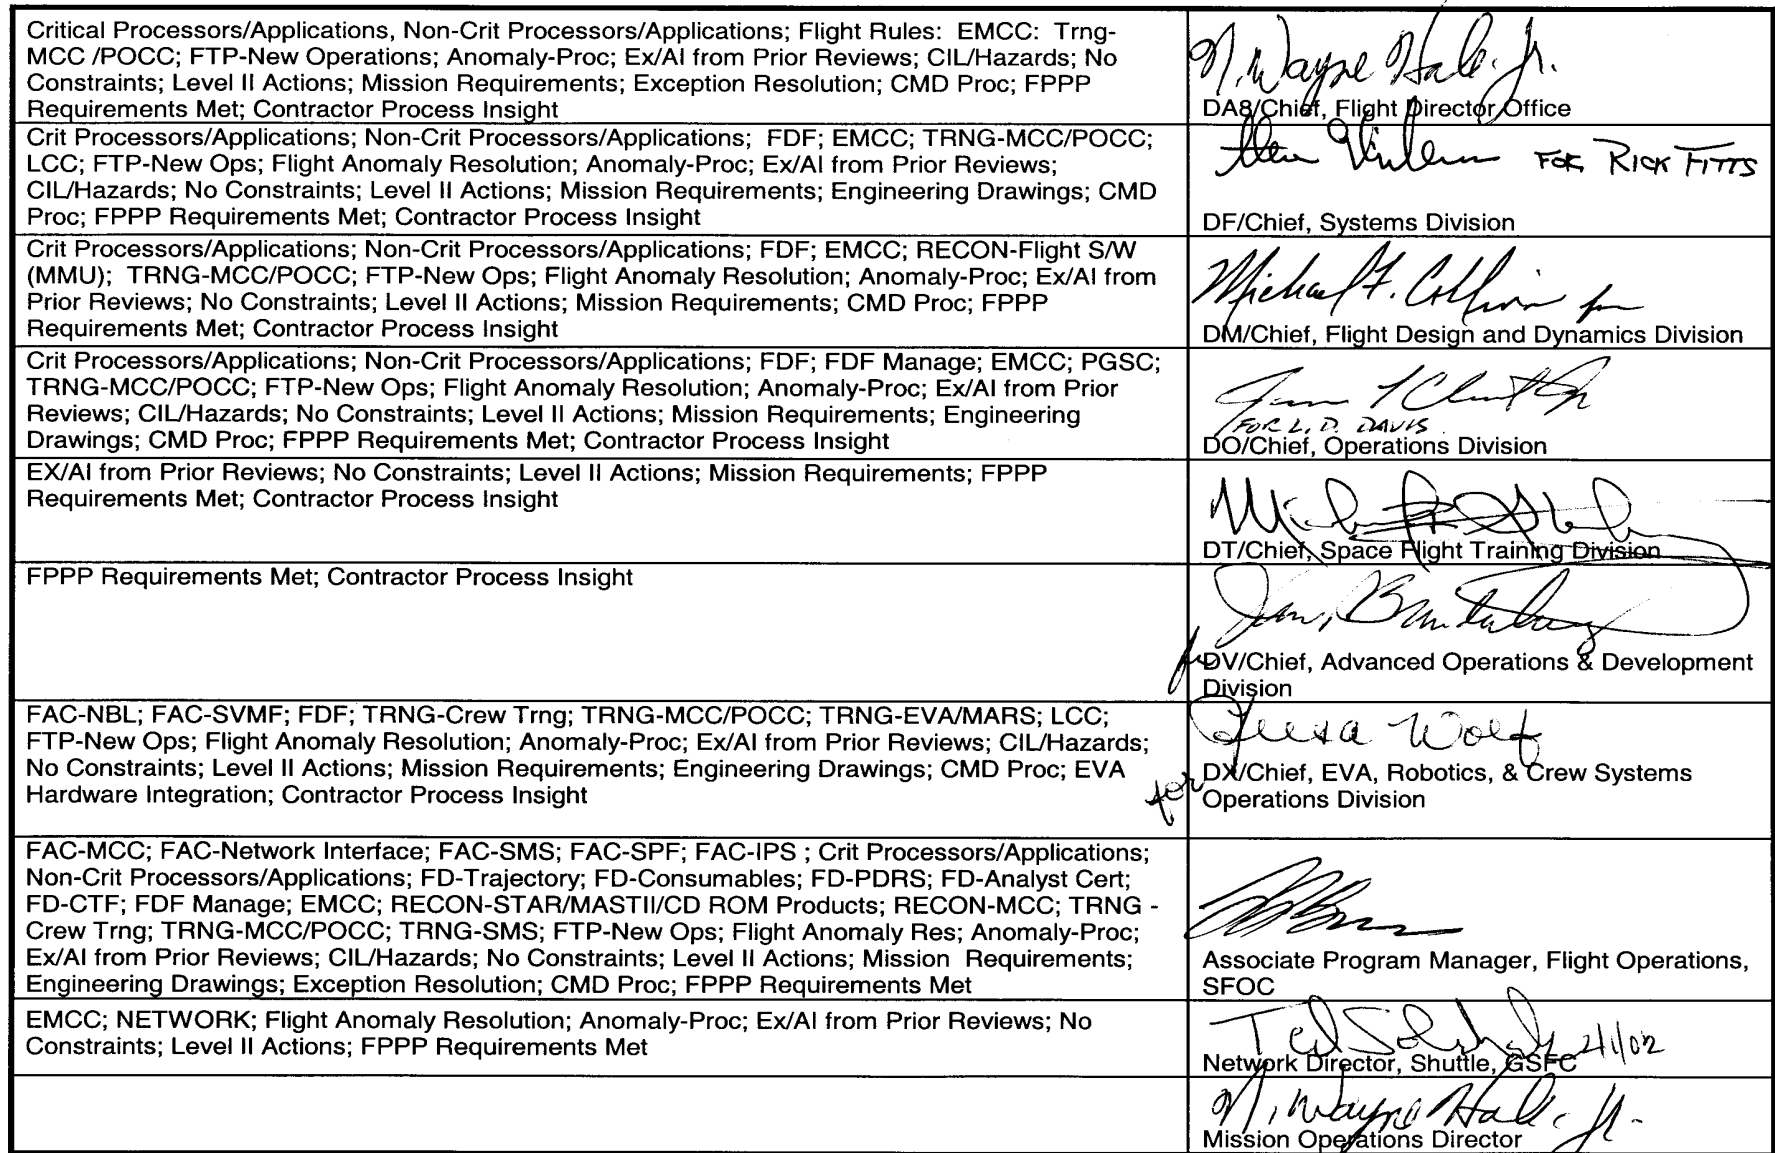 Critical Processors/Applications, Non-Crit Processors/Applications; Flight Rules: EMCC: Trng-
MCC /POCC; FTP-New Operations; Anomaly-Proc; Ex/AI from Prior Reviews; CIL/Hazards; No
Constraints; Level II Actions; Mission Requirements; Exception Resolution; CMD Proc; FPPP
Requirements Met; Contractor Process Insight
N. Wayne Hale. Jr.
DA8/Chief, Flight Director Office
Crit Processors/Applications; Non-Crit Processors/Applications; FDF; EMCC; TRNG-MCC/POCC;
LCC; FTP-New Ops; Flight Anomaly Resolution; Anomaly-Proc; Ex/AI from Prior Reviews;
CIL/Hazards; No Constraints; Level II Actions; Mission Requirements; Engineering Drawings; CMD
Proc; FPPP Requirements Met; Contractor Process Insight
FOR RICK FITTS
DF/Chief, Systems Division
Crit Processors/Applications; Non-Crit Processors/Applications; FDF; EMCC; RECON-Flight S/W
(MMU); TRNG-MCC/POCC; FTP-New Ops; Flight Anomaly Resolution; Anomaly-Proc; Ex/AI from
Prior Reviews; No Constraints; Level II Actions; Mission Requirements; CMD Proc; FPPP
Requirements Met; Contractor Process Insight
Michael F. Collins for
DM/Chief, Flight Design and Dynamics Division
Crit Processors/Applications; Non-Crit Processors/Applications; FDF; FDF Manage; EMCC; PGSC;
TRNG-MCC/POCC; FTP-New Ops; Flight Anomaly Resolution; Anomaly-Proc; Ex/AI from Prior
Reviews; CIL/Hazards; No Constraints; Level II Actions; Mission Requirements; Engineering
Drawings; CMD Proc; FPPP Requirements Met; Contractor Process Insight
FOR L. D. DAVIS
DO/Chief, Operations Division
EX/AI from Prior Reviews; No Constraints; Level II Actions; Mission Requirements; FPPP
Requirements Met; Contractor Process Insight
DT/Chief, Space Flight Training Division
FPPP Requirements Met; Contractor Process Insight
for
DV/Chief, Advanced Operations & Development
Division
FAC-NBL; FAC-SVMF; FDF; TRNG-Crew Trng; TRNG-MCC/POCC; TRNG-EVA/MARS; LCC;
FTP-New Ops; Flight Anomaly Resolution; Anomaly-Proc; Ex/AI from Prior Reviews; CIL/Hazards;
No Constraints; Level II Actions; Mission Requirements; Engineering Drawings; CMD Proc; EVA
Hardware Integration; Contractor Process Insight
Wolf
for
DX/Chief, EVA, Robotics, & Crew Systems
Operations Division
FAC-MCC; FAC-Network Interface; FAC-SMS; FAC-SPF; FAC-IPS ; Crit Processors/Applications;
Non-Crit Processors/Applications; FD-Trajectory; FD-Consumables; FD-PDRS; FD-Analyst Cert;
FD-CTF; FDF Manage; EMCC; RECON-STAR/MASTII/CD ROM Products; RECON-MCC; TRNG -
Crew Trng; TRNG-MCC/POCC; TRNG-SMS; FTP-New Ops; Flight Anomaly Res; Anomaly-Proc;
Ex/AI from Prior Reviews; CIL/Hazards; No Constraints; Level II Actions; Mission Requirements;
Engineering Drawings; Exception Resolution; CMD Proc; FPPP Requirements Met
Associate Program Manager, Flight Operations,
SFOC
EMCC; NETWORK; Flight Anomaly Resolution; Anomaly-Proc; Ex/AI from Prior Reviews; No
Constraints; Level II Actions; FPPP Requirements Met
Ted 2/1/02
Network Director, Shuttle, GSFC
N. Wayne Hale. Jr.
Mission Operations Director